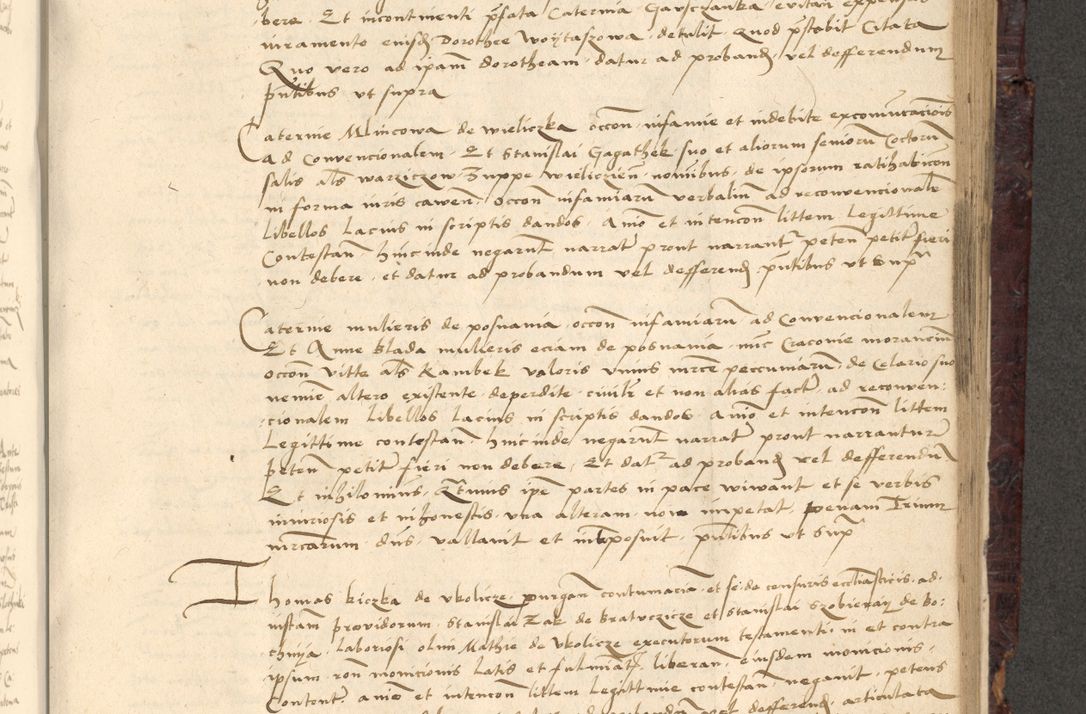 bere Et incontinenti prefata Caterina Gawsczanka evitan expensas
iuramento eiusdem Dorothee Woytaszowa detulit Quod prestabit Citata
Quo vero ad ipam dorotheam datur ad proband vel defferendum
pntibus vt supra
Caterine Mlincowa de wieliczka occon infamie et indebite excomunicacionis
Ad Convencionalem Et Stanislai Gagathek suo et aliorum seniorum Coctorum
salis als warziczow Zuppe wieliczien nominibus de ipsorum ratihabicon
in forma iuris caven occon infamiarum verbalium ad reconvencionale
libellos lacius in scriptis dandos Animo et intencon littem legittime
Contestan hincinde negarunt narrata prout narrantur peten petita fieri
non debere et datur ad probandum vel defferend pntibus vt supra
Caterine mulieris de posnania occon infamiarum ad Convencionalem
Et Anne blada mulieris eciam de posnania nunc Cracovie morancium
occon vitte als Rambek valoris vnius mrce pecuniarum de Celario suo
nemine altero existente deperdite civilr et non alias facta ad reconven
cionalem libellos lacius in scriptis dandos animo et intencon littem
legittime contestan hincinde negarunt narrata prout narrantur
peten petita fieri non debere Et datur ad proband vel defferendum
Et nihilominus vt ipe partes in pace viwant et se verbis
iniuriosis et inhonestis vna alteram non impetat penam Trium
mrcarum dns vallavit et imposuit pntibus vt supra
Thomas kiczka de vkolicze purgan contumacia et se de censuris ecclesiasticis ad
instam providorum Stanislai Zak de bratuczicze et Stanislai Szobieray de bo
chnya laboriosi olim Mathie de Vkolicze executorum testamenti in et contra
ipsum ron monicionis latis et fulminat liberan eiusdem monicionis
Contenta animo et intencon littem legittime contestan negavit petens
vel defferend articulata